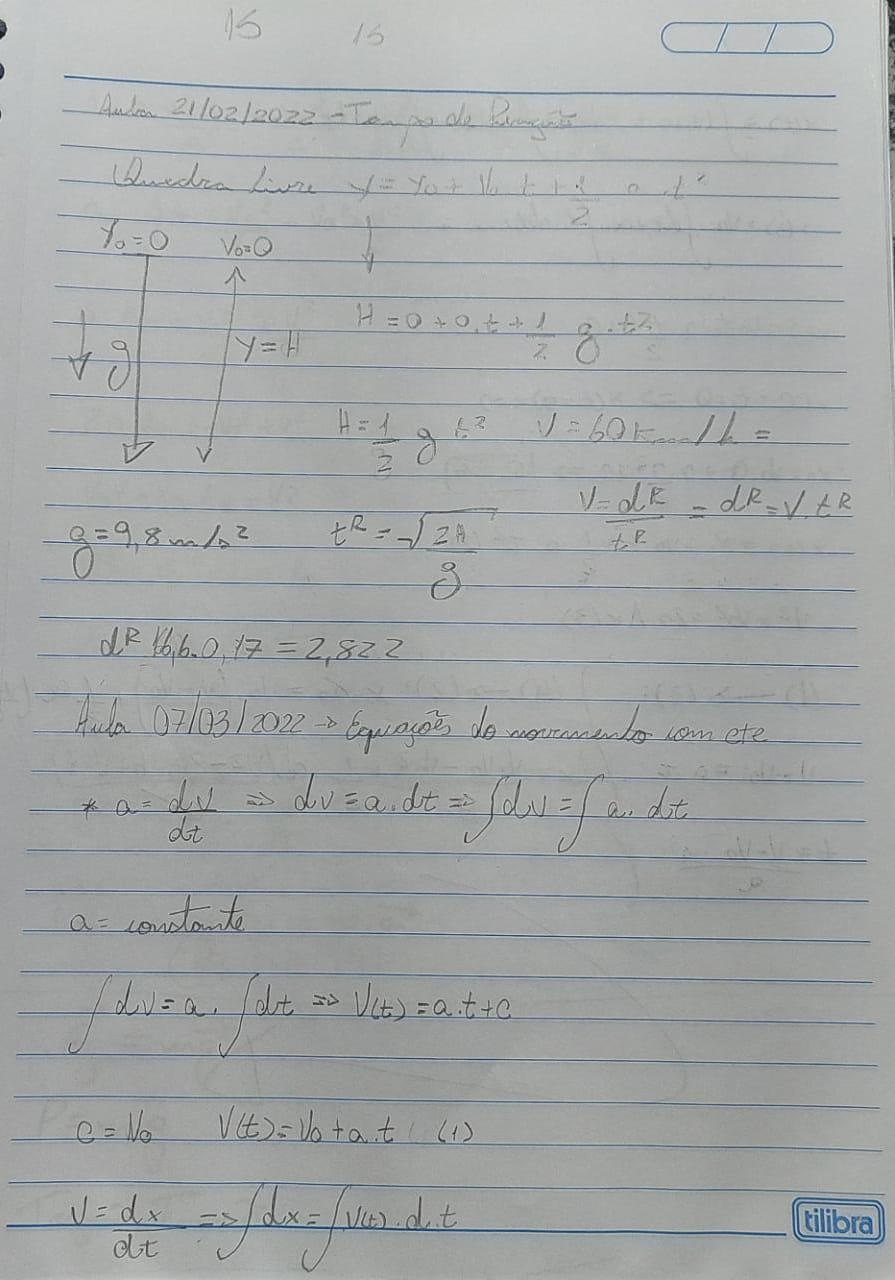 15 15
Aula 21/02/2022 - Tempo de Reação
Quedra Livre y = y0 + V0 t + 1/2 a . t²
Y0 = 0 V0 = 0
H = 0 + 0.t + 1/2 g . t²
g Y = H
H = 1/2 g t² V = 60 Km/h =
V = dR/tR = dR = V. tR
g = 9,8 m/s² tR = √2H/g
dR 16,6. 0,17 = 2,822
Aula 07/03/2022 -> Equações do movimento com cte
* a = dV/dt => dv = a. dt => ∫dv = ∫a. dt
a = constante
∫dv = a. ∫dt => V(t) = a.t + C
C = V0 V(t) = V0 + a.t (1)
V = dx/dt => ∫dx = ∫V(t). d.t
tilibra